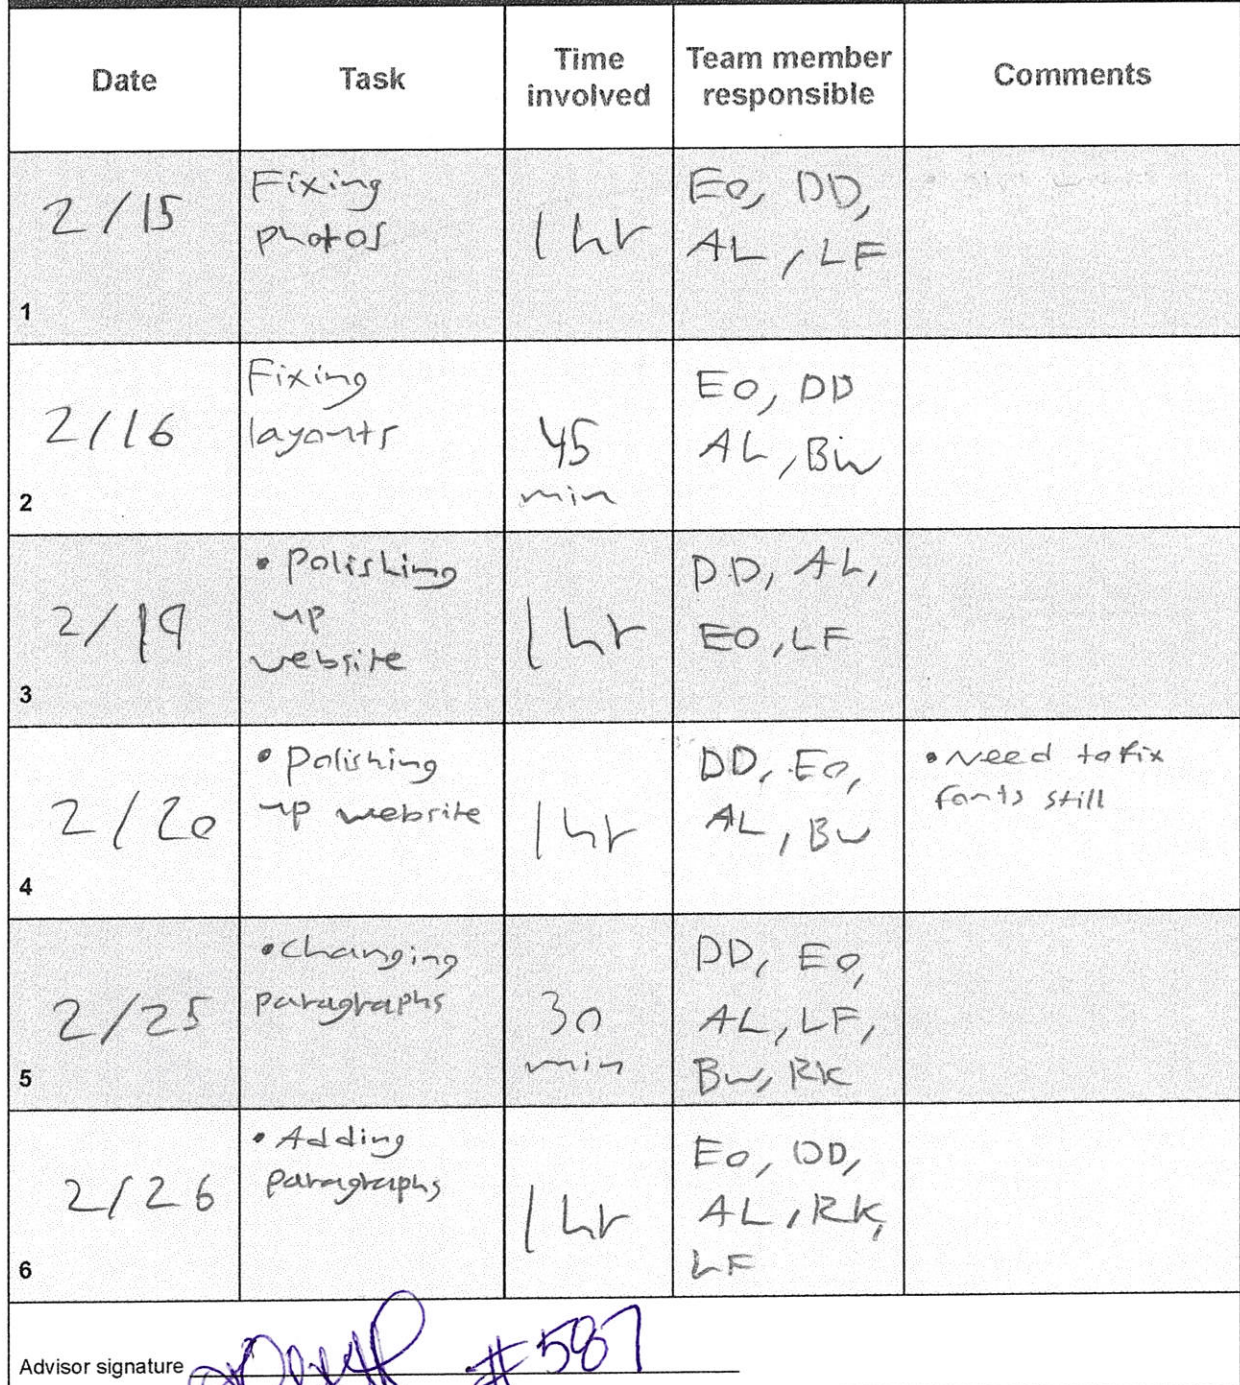 Date Task Time involved Team member responsible Comments
1 2/15 Fixing photos 1 hr EO, DD, AL, LF
2 2/16 Fixing layouts 45 min EO, DD AL, BW
3 2/19 • Polishing up website 1 hr DD, AL, EO, LF
4 2/20 • Polishing up website 1 hr DD, EO, AL, BW • Need to fix fonts still
5 2/25 • Changing paragraphs 30 min DD, EO, AL, LF, BW, RK
6 2/26 • Adding paragraphs 1 hr EO, DD, AL, RK, LF
Advisor signature #587